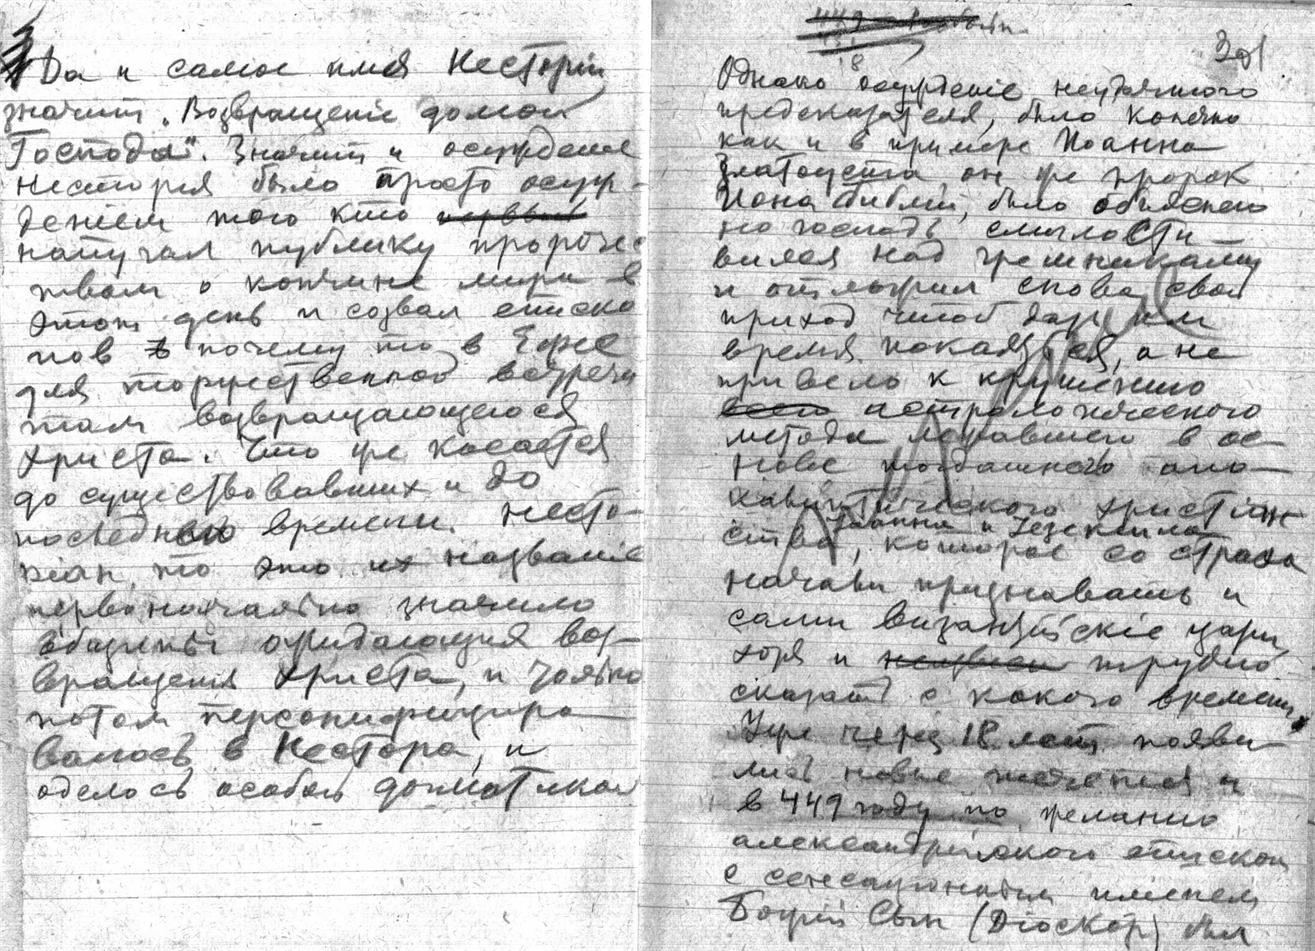 Да и самое имя Несторiй
значит „Возвращенiе домой
Господа". Значит и осужденiе
Нестория было просто осуж-
денiем того кто первый
напугал публику пророче-
ством о кончине мира в
этот день и созвал еписко
пов в почему то в Ефес
для торжественной встречи
там возвращающегося
Христа. Что же касается
до существовавших и до
последняго времени несто-
риан, то это их названiе
первоначально значило
общины ожидающiя воз-
вращенiя Христа, и только
потом персонифициро
валось в Нестора, и
оделось особой догматикой
301
Однако осужденiе неудачного
предсказателя, было конечно
как и в примере Иоанна
Златоуста, он же пророк
Иона библии, было объяснено
но господь смилости-
вился над грешниками
и отложил снова свой
приход чтоб дать им
время покаяться, а не
привело к крушению
всего астрологического
метода лежавшего в ос-
нове тогдашнего апо-
калиптического христiан
Иоанна и Иезекиила
ства, которое со страха
начали признавать и
сами византiйскiе цари,
хотя и трудно
сказать с какого времени.
Уже через 18 лет появи-
лись новые и
в 449 году по желанию
александрiйского епископа
с сенсационным именем
Божiй Сын (Дiоскор) был